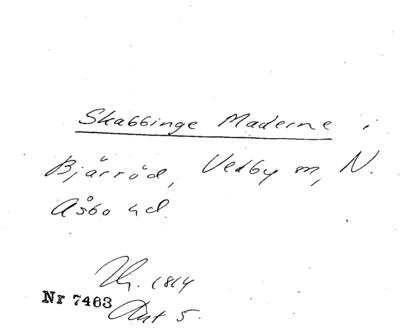 Skabbinge Maderne i
Bjärröd, Vedby sn, N.
Åsbo hd.
Nr 7463
1814
Akt 5.